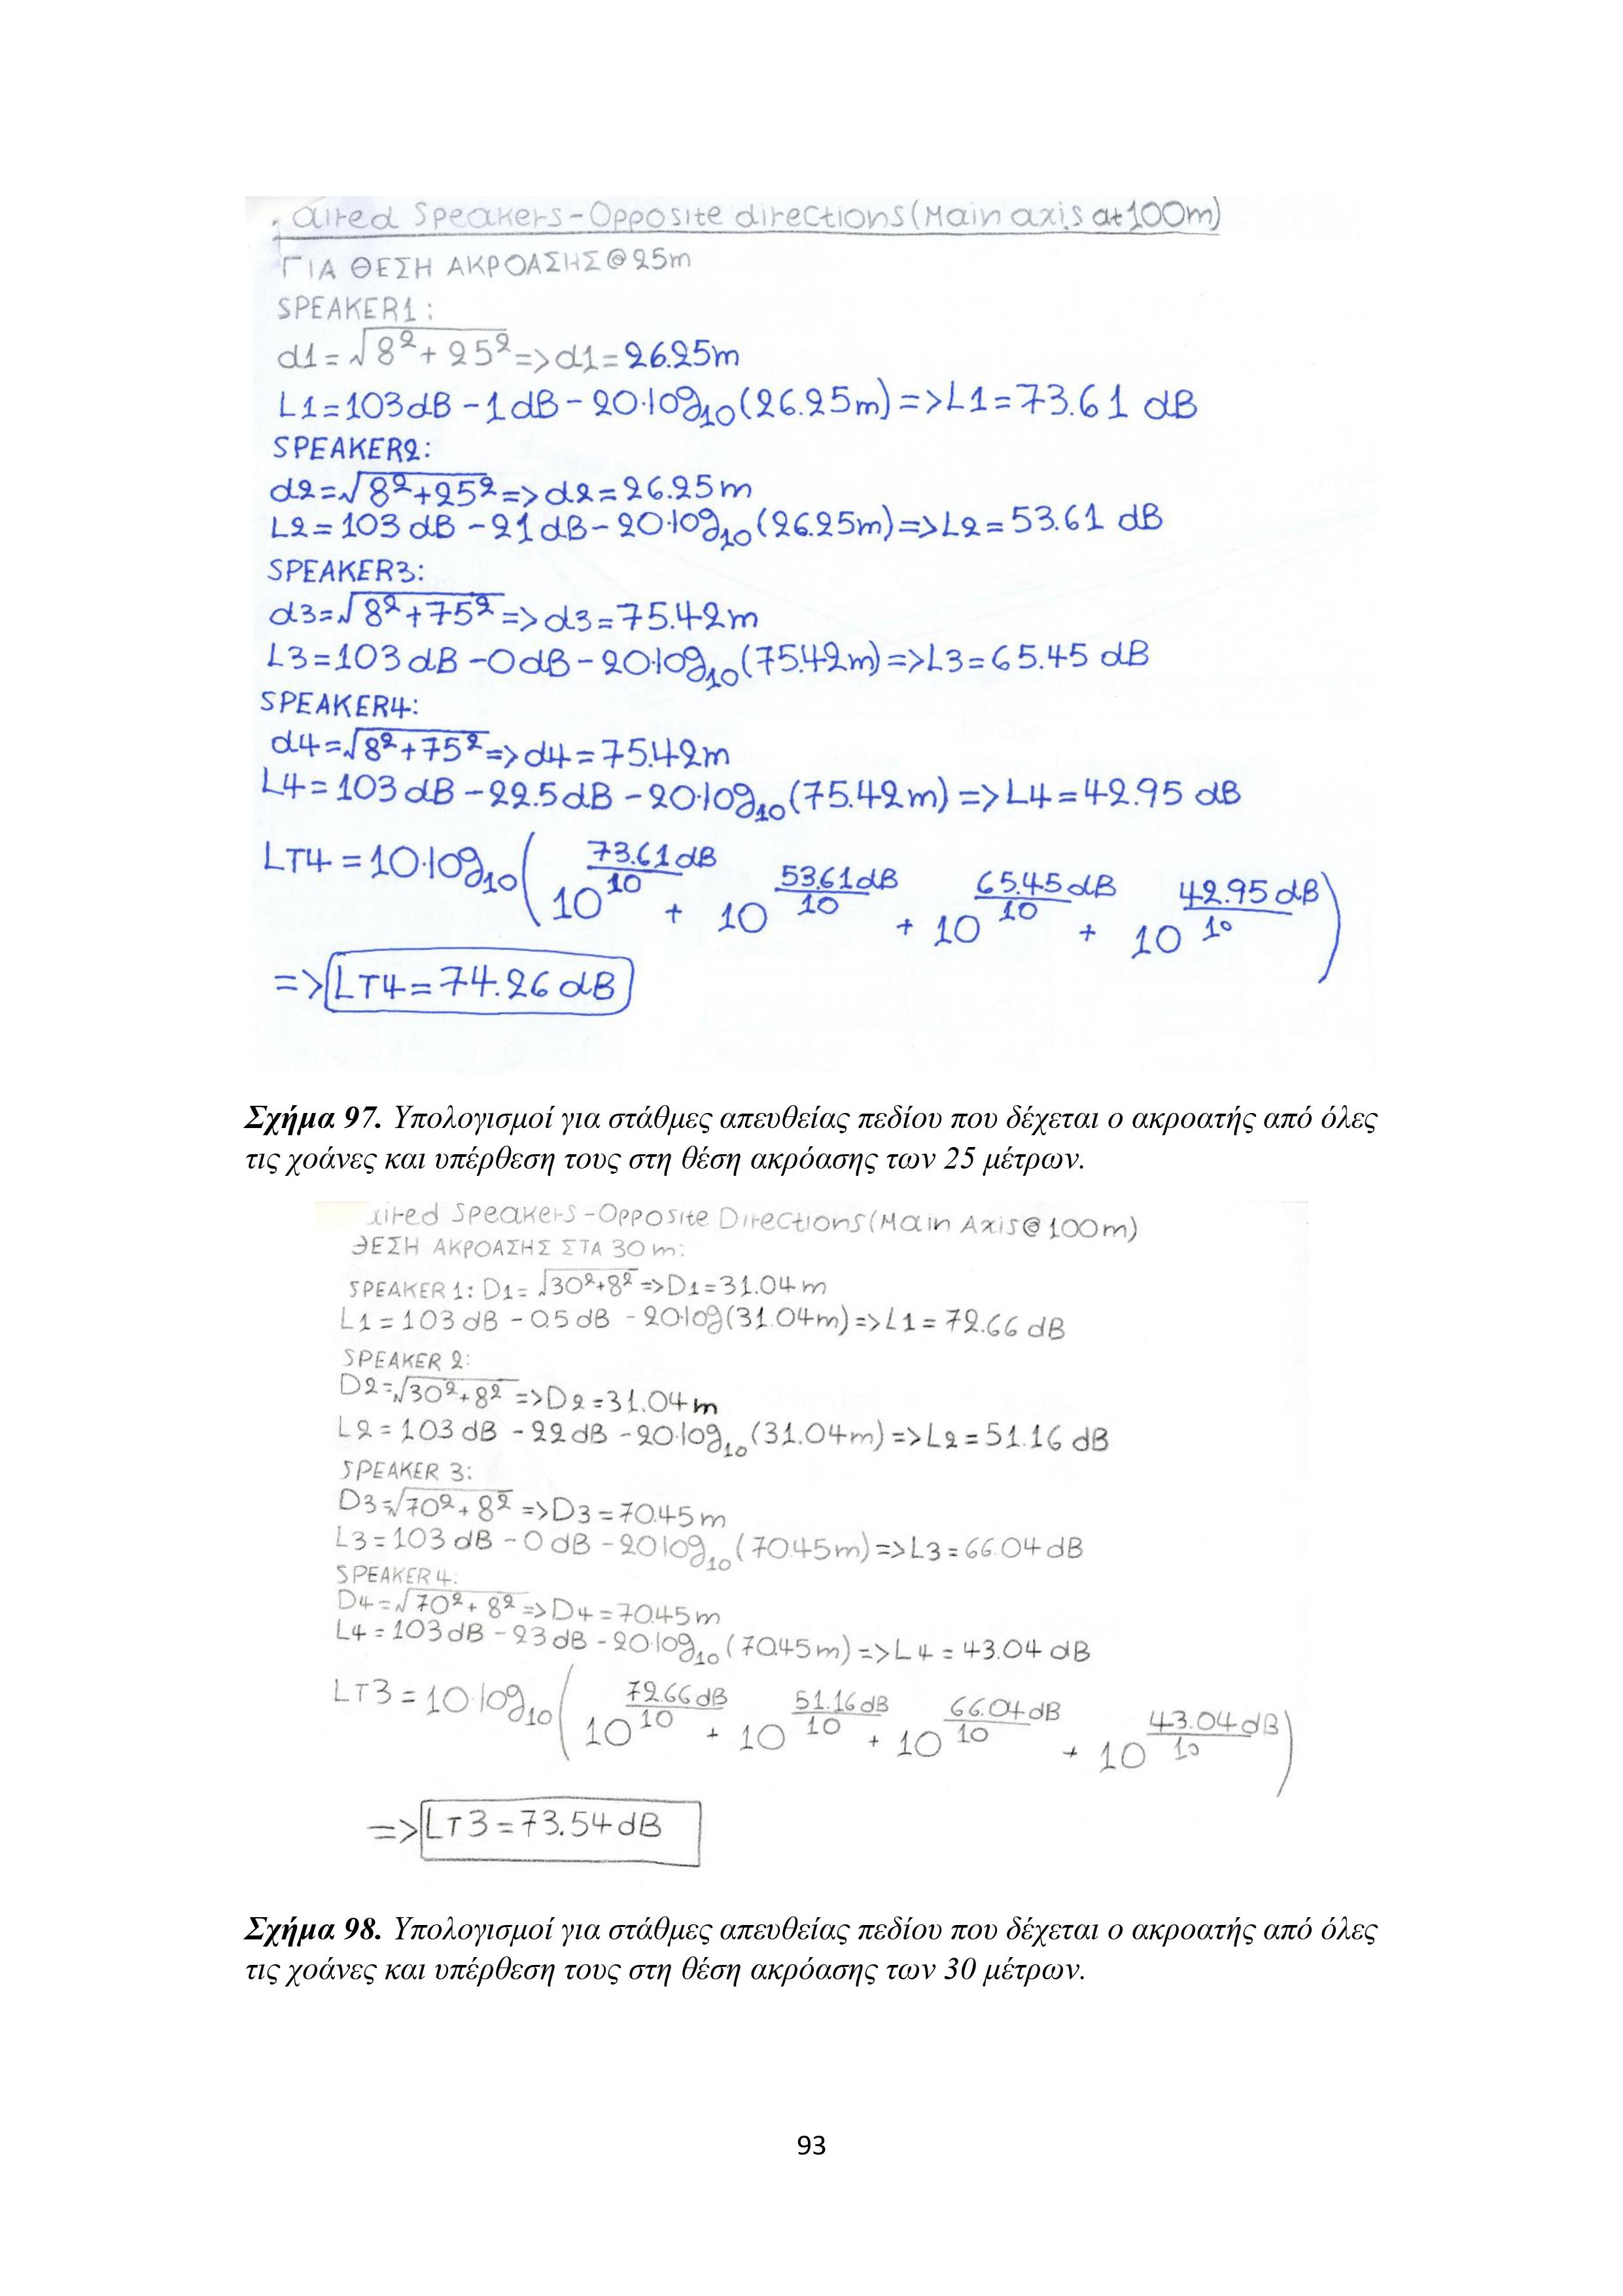 aired Speakers-Opposite directions(Main axis at 100m)
ΓΙΑ ΘΕΣΗ ΑΚΡΟΑΣΗΣ@25m
SPEAKER1:
d1=√8²+25²=>d1=26.25m
L1=103dB-1dB-20·log₁₀(26.25m)=>L1=73.61 dB
SPEAKER2:
d2=√8²+25²=>d2=26.25m
L2=103dB-21dB-20·log₁₀(26.25m)=>L2=53.61 dB
SPEAKER3:
d3=√8²+75²=>d3=75.42m
L3=103dB-0dB-20·log₁₀(75.42m)=>L3=65.45 dB
SPEAKER4:
d4=√8²+75²=>d4=75.42m
L4=103dB-22.5dB-20·log₁₀(75.42m)=>L4=42.95 dB
LT4=10·log₁₀(10^(73.61dB/10) + 10^(53.61dB/10) + 10^(65.45dB/10) + 10^(42.95dB/10))
=>LT4=74.26dB
Σχήμα 97. Υπολογισμοί για στάθμες απευθείας πεδίου που δέχεται ο ακροατής από όλες
τις χοάνες και υπέρθεση τους στη θέση ακρόασης των 25 μέτρων.
aired Speakers-Opposite Directions(Main Axis@100m)
ΘΕΣΗ ΑΚΡΟΑΣΗΣ ΣΤΑ 30m:
SPEAKER1: D1=√30²+8²=>D1=31.04m
L1=103dB-0.5dB-20·log(31.04m)=>L1=72.66dB
SPEAKER 2:
D2=√30²+8²=>D2=31.04m
L2=103dB-22dB-20·log₁₀(31.04m)=>L2=51.16dB
SPEAKER 3:
D3=√70²+8²=>D3=70.45m
L3=103dB-0dB-20·log₁₀(70.45m)=>L3=66.04dB
SPEAKER4:
D4=√70²+8²=>D4=70.45m
L4=103dB-23dB-20·log₁₀(70.45m)=>L4=43.04dB
LT3=10·log₁₀(10^(72.66dB/10) + 10^(51.16dB/10) + 10^(66.04dB/10) + 10^(43.04dB/10))
=>LT3=73.54dB
Σχήμα 98. Υπολογισμοί για στάθμες απευθείας πεδίου που δέχεται ο ακροατής από όλες
τις χοάνες και υπέρθεση τους στη θέση ακρόασης των 30 μέτρων.
93